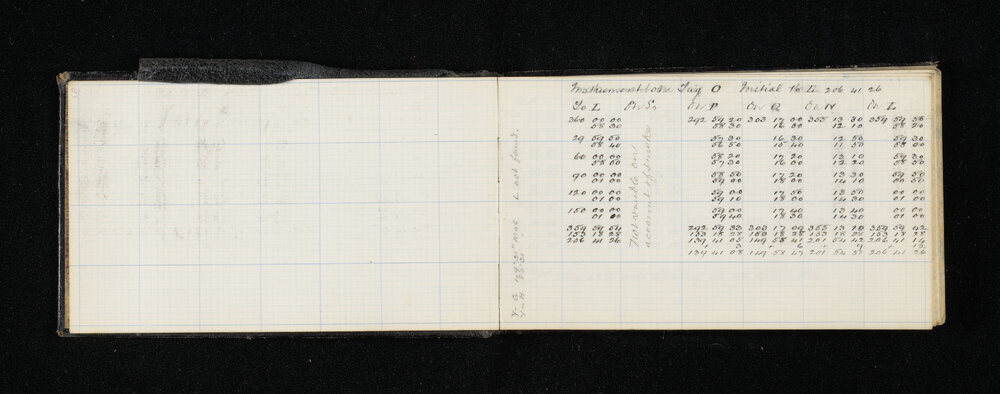 Instrument Trig O Initial 206 41 26
To L On P On Q On N On L
360 00 00 292 59 20 303 17 00 355 13 30 359 59 58
58 30 58 30 16 00 12 10 58 20
29 59 50 59 30 16 30 12 50 59 30
58 40 56 50 15 40 11 50 58 00
60 00 00 58 20 17 20 13 10 59 30
58 50 57 30 16 00 12 20 58 50
90 00 00 58 50 17 20 13 30 59 50
01 00 59 00 18 00 14 10 00 50
120 00 00 59 00 17 50 13 50 00 00
01 00 59 10 18 00 14 30 01 00
150 00 00 59 00 17 40 13 40 00 00
01 00 59 40 18 30 14 30 01 00
359 59 54 292 59 33 303 17 09 355 13 10 359 59 42
153 18 28 153 18 28 153 18 28 153 18 28 153 18 28
206 41 26 139 41 05 149 58 41 201 54 42 206 41 14
3 6 9 12
139 41 08 149 58 47 201 54 51 206 41 26
Not visible on
account of smoke
L not found.